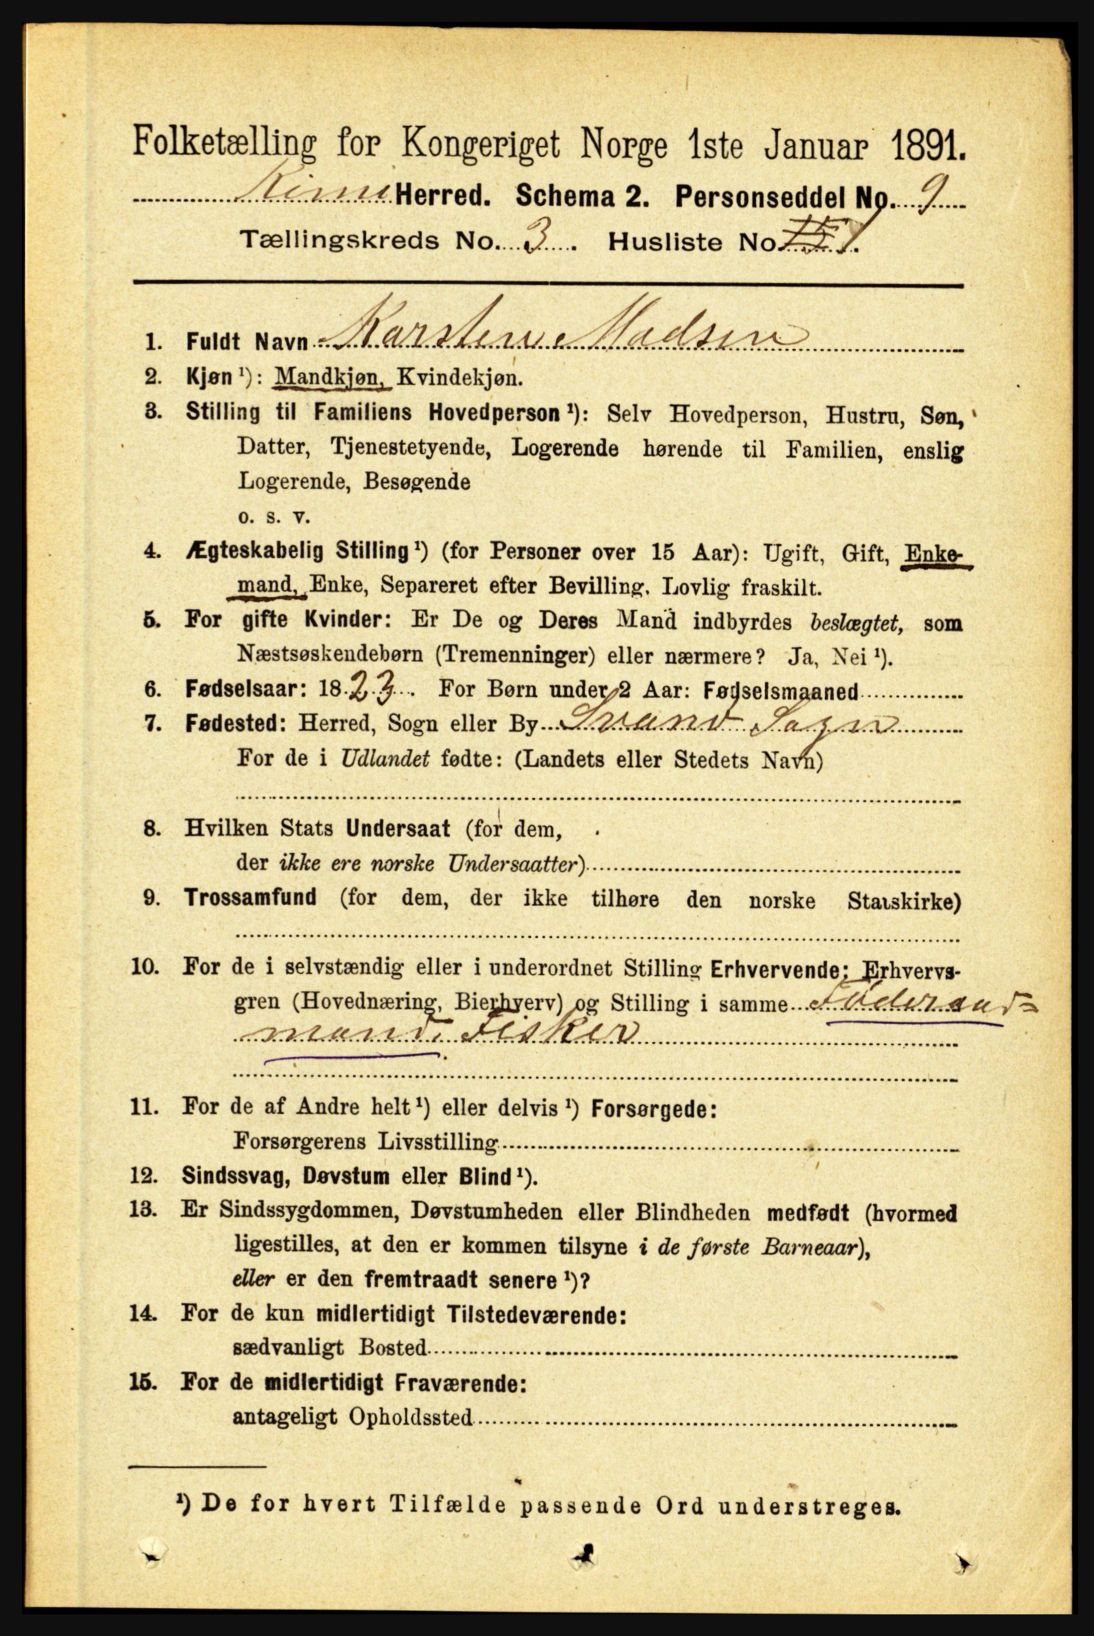 Folketælling for Kongeriget Norge 1ste Januar 1891.
Kinn Herred. Schema 2. Personseddel No. 9
Tællingskreds No. 3. Husliste No. 1.
1. Fuldt Navn Karsten Madsen
2. Kjøn ¹): Mandkjøn, Kvindekjøn.
3. Stilling til Familiens Hovedperson ¹): Selv Hovedperson, Hustru, Søn,
Datter, Tjenestetyende, Logerende hørende til Familien, enslig
Logerende, Besøgende
o. s. v.
4. Ægteskabelig Stilling ¹) (for Personer over 15 Aar): Ugift, Gift, Enke-
mand, Enke, Separeret efter Bevilling. Lovlig fraskilt.
5. For gifte Kvinder: Er De og Deres Mand indbyrdes beslægtet, som
Næstsøskendebørn (Tremenninger) eller nærmere? Ja, Nei ¹).
6. Fødselsaar: 1823. For Børn under 2 Aar: Fødselsmaaned
7. Fødested: Herred, Sogn eller By Svanø Sogn
For de i Udlandet fødte: (Landets eller Stedets Navn)
8. Hvilken Stats Undersaat (for dem,
der ikke ere norske Undersaatter)
9. Trossamfund (for dem, der ikke tilhøre den norske Statskirke)
10. For de i selvstændig eller i underordnet Stilling Erhvervende: Erhvervs-
gren (Hovednæring, Bierhverv) og Stilling i samme Føderaads=
mand. Fisker
11. For de af Andre helt ¹) eller delvis ¹) Forsørgede:
Forsørgerens Livsstilling
12. Sindssvag, Døvstum eller Blind ¹).
13. Er Sindssygdommen, Døvstumheden eller Blindheden medfødt (hvormed
ligestilles, at den er kommen tilsyne i de første Barneaar),
eller er den fremtraadt senere ¹)?
14. For de kun midlertidigt Tilstedeværende:
sædvanligt Bosted
15. For de midlertidigt Fraværende:
antageligt Opholdssted
¹) De for hvert Tilfælde passende Ord understreges.